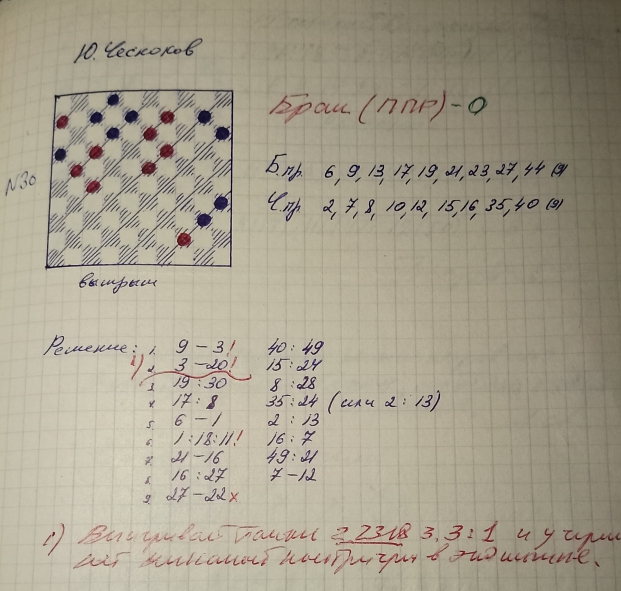 Ю. Чесноков
Брак (ППР) - 0
N30
Б. пр. 6, 9, 13, 17, 19, 21, 23, 27, 44 (9)
Ч. пр. 2, 7, 8, 10, 12, 15, 16, 35, 40 (9)
выигрыш
Решение: 1. 9 – 3! 40 : 49
1) 2. 3 – 20! 15 : 24
3. 19 : 30 8 : 28
4. 17 : 8 35 : 24 (или 2 : 13)
5. 6 – 1 2 : 13
6. 1 : 18 : 11! 16 : 7
7. 21 – 16 49 : 21
8. 16 : 27 7 – 12
9. 27 – 22 x
1) Выигрывает 2. 23-18 3. 3 : 1 и у
в